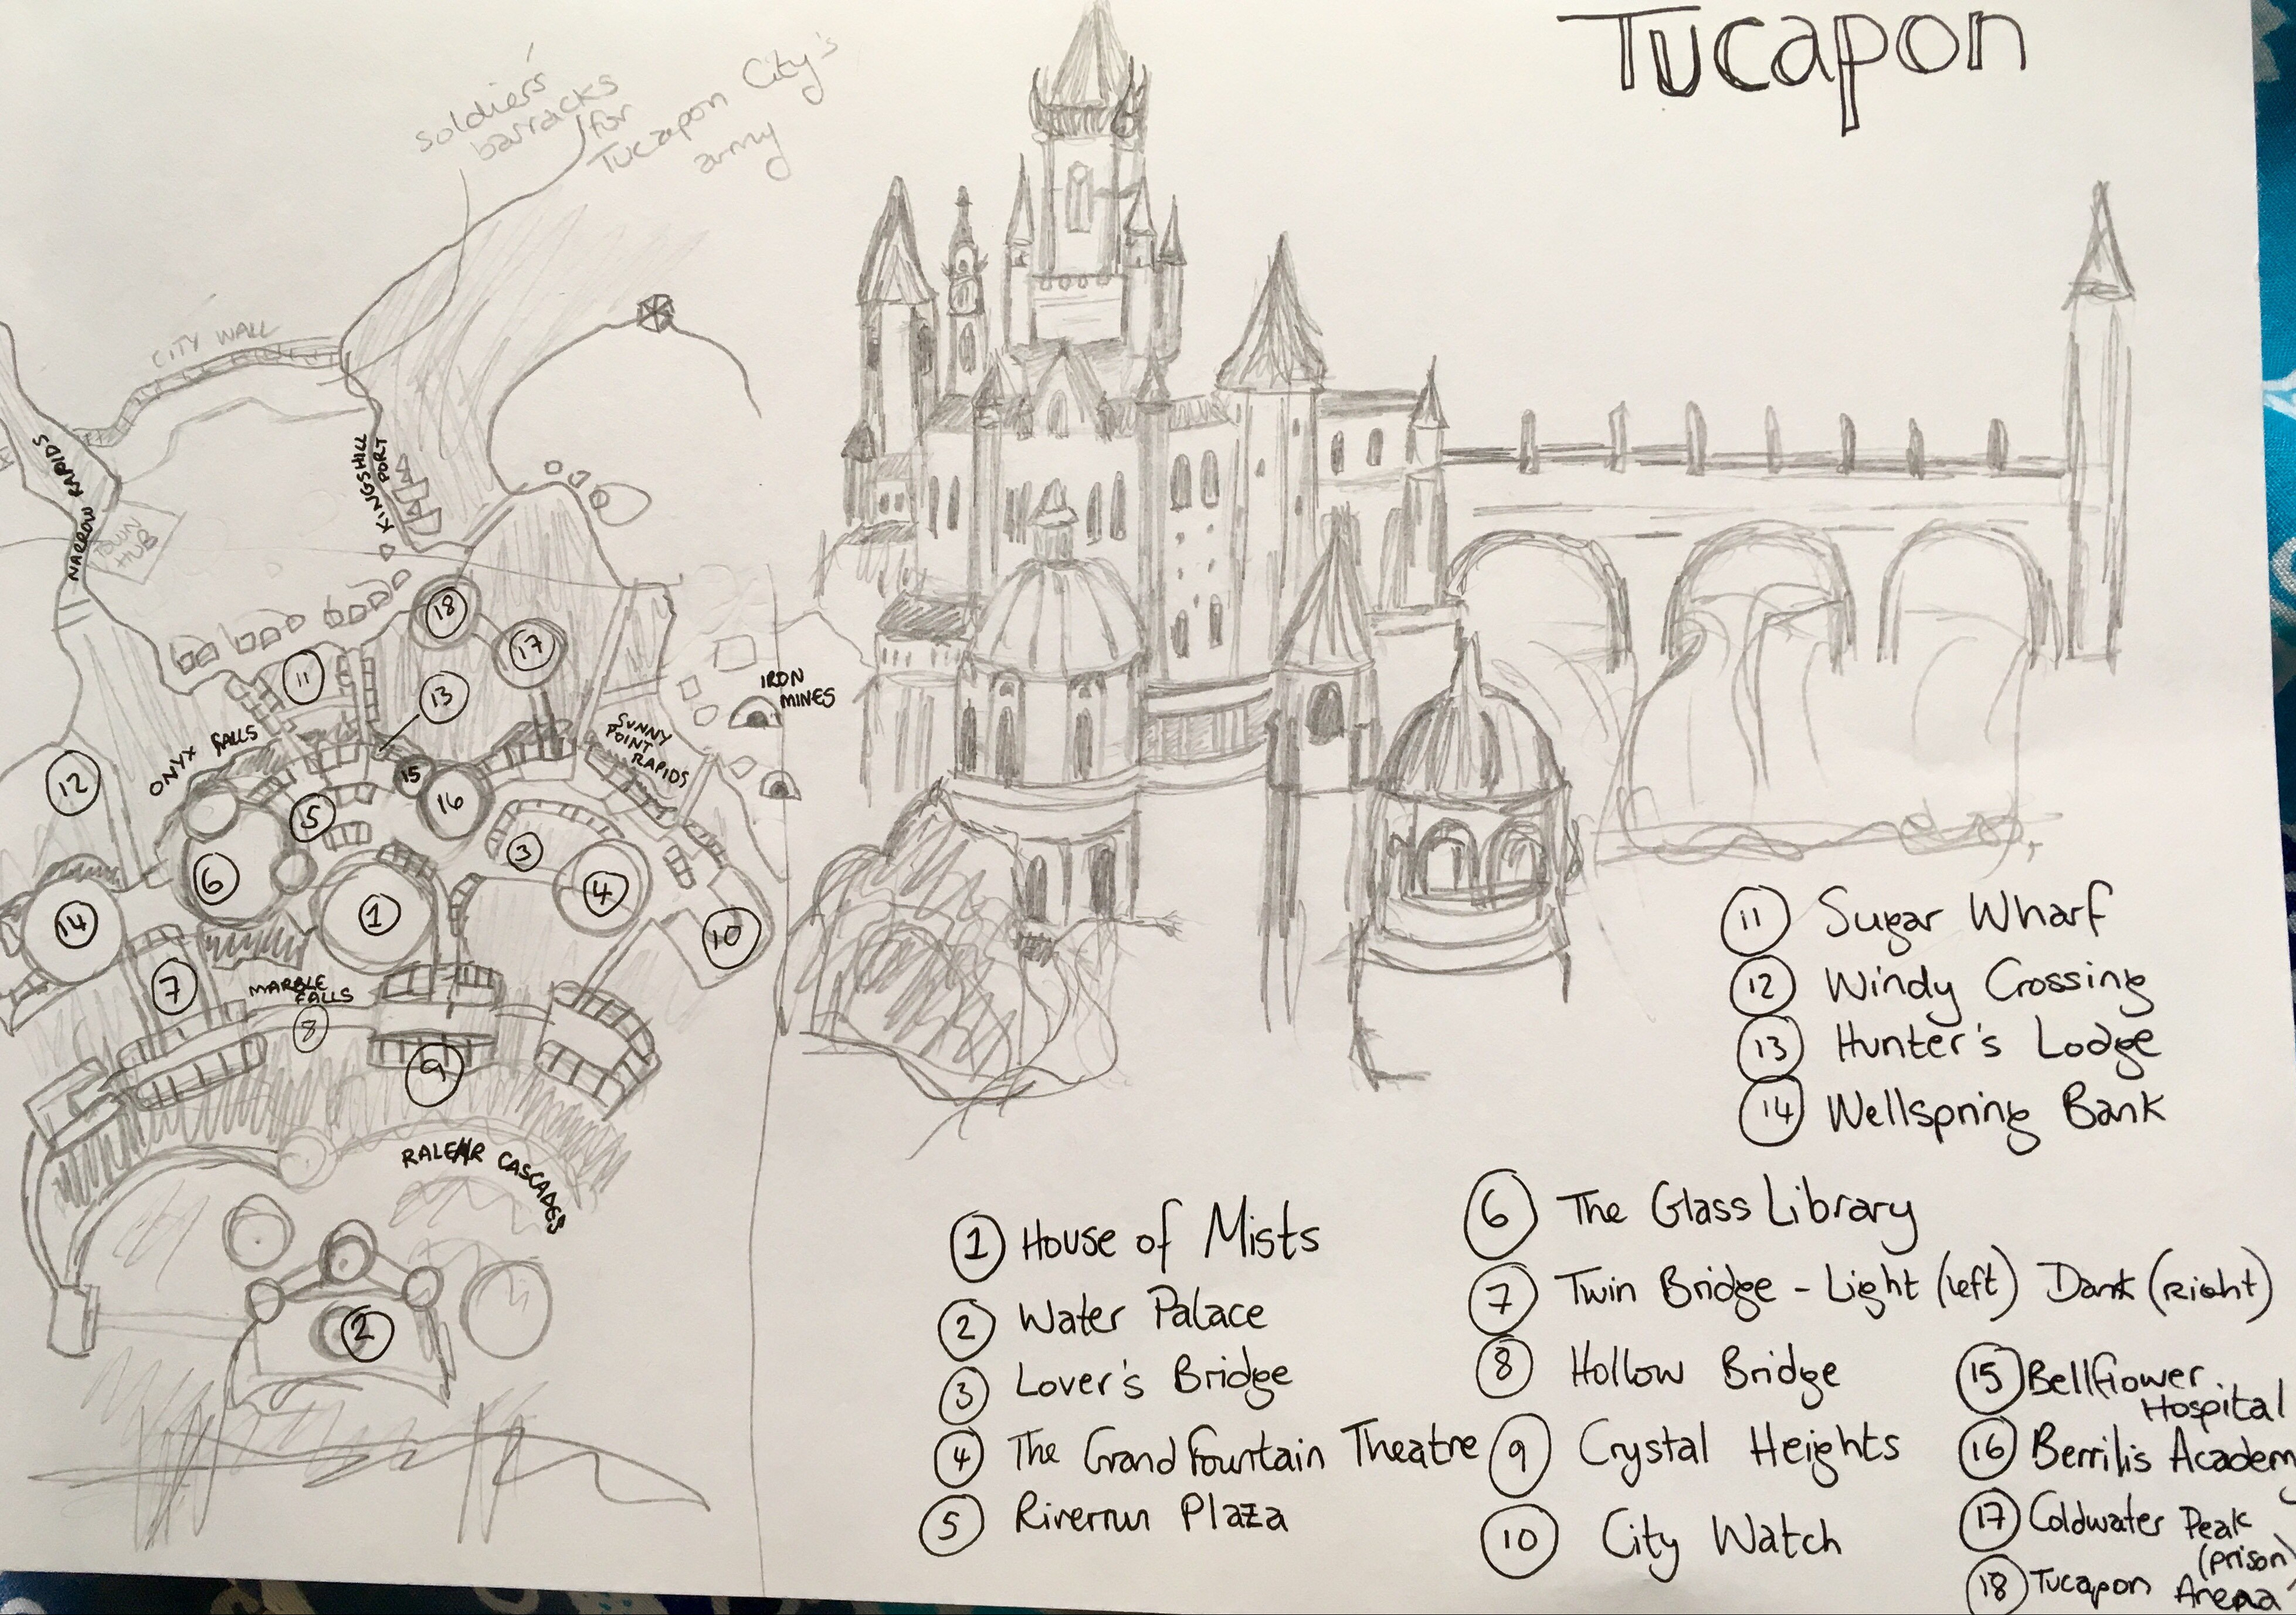 Tucapon
soldier's
barracks
for
Tucapon City's
army
CITY WALL
NARROW RAPIDS
TOWN
HUB
KINGSHILL
PORT
18
17
11
13
IRON
MINES
ONYX FALLS
SUNNY
POINT
RAPIDS
12
15
16
5
3
6
4
14
1
10
7
MARBLE
FALLS
8
9
CASCADES
2
11 Sugar Wharf
12 Windy Crossing
13 Hunter's Lodge
14 Wellspring Bank
1 House of Mists
2 Water Palace
3 Lover's Bridge
4 The Grand Fountain Theatre
5 Riverrun Plaza
6 The Glass Library
7 Twin Bridge - Light (left) Dark (Right)
8 Hollow Bridge
9 Crystal Heights
10 City Watch
15 Bellflower
Hospital
16 Berrili's Academy
17 Coldwater Peak
(prison)
18 Tucapon Arena